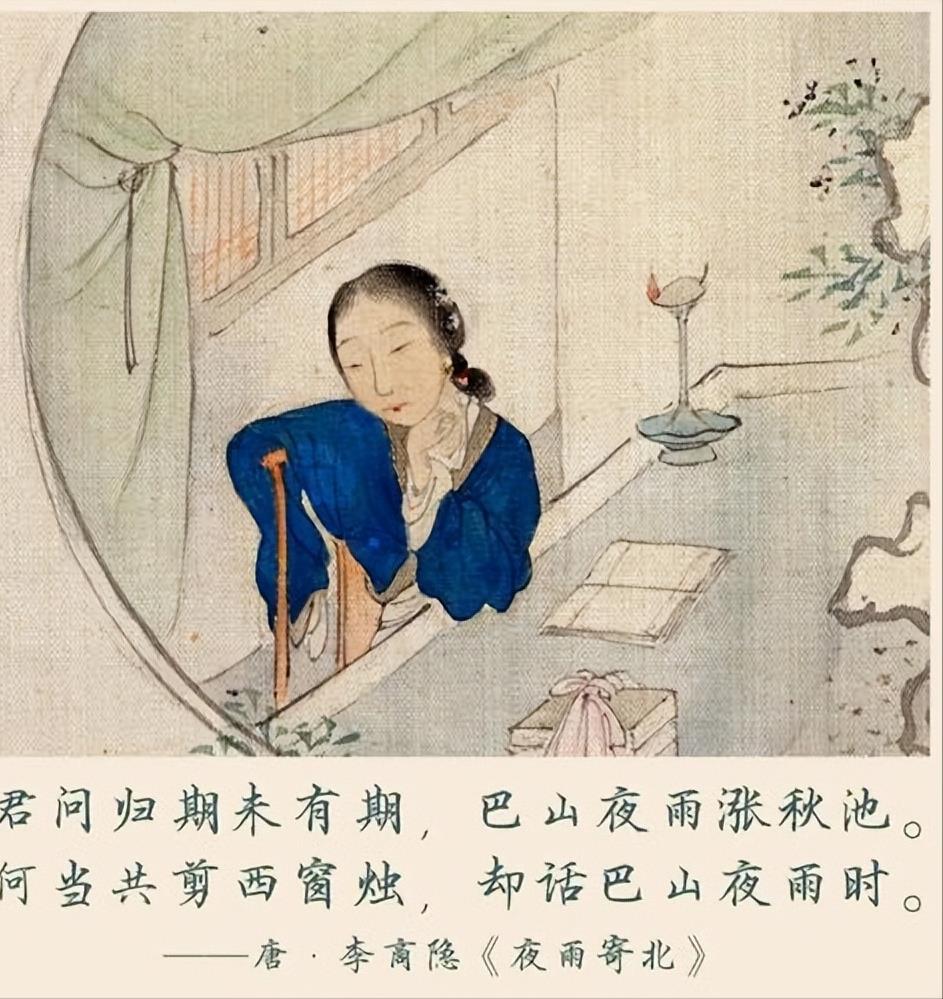 君问归期未有期，巴山夜雨涨秋池。
何当共剪西窗烛，却话巴山夜雨时。
——唐·李商隐《夜雨寄北》